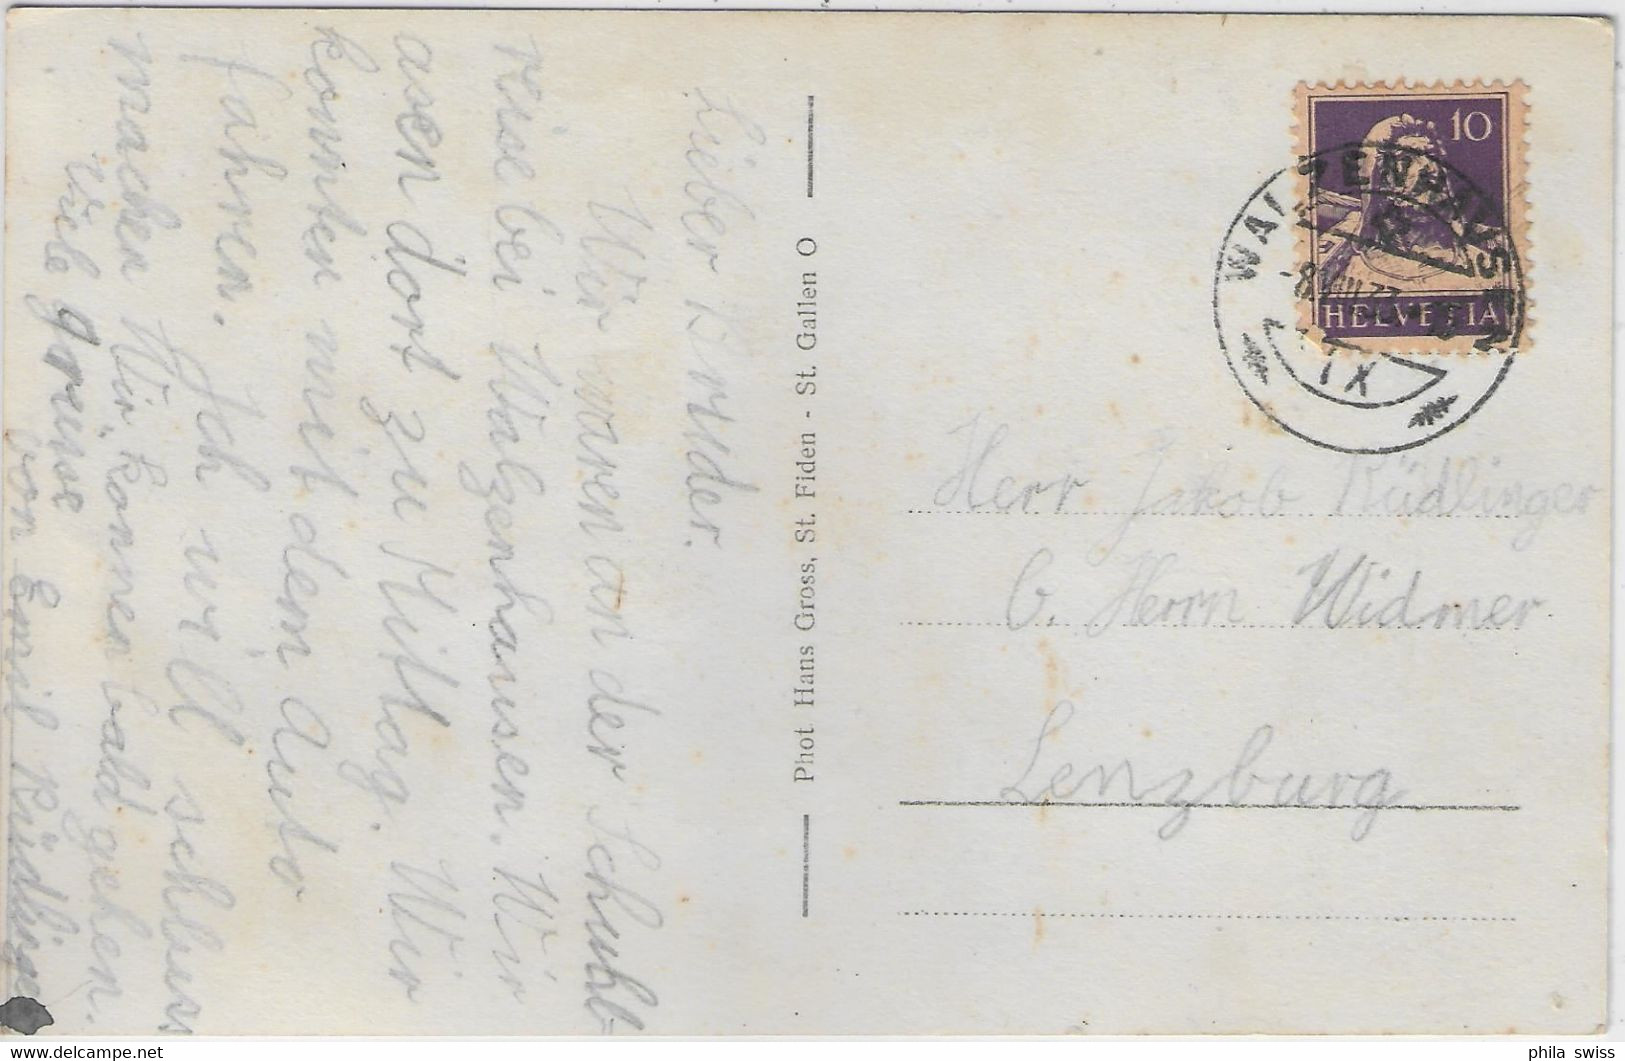 Lieber Bruder.
Wir waren an der Schuhl-
reise bei Walzenhausen. Wir
asen dort zu Mittag. Wir
konnten mit dem Auto
fahren. Ich will schluss
machen Wir können bald gehen.
Viele Grüsse
von Emil Rüdlinger
Phot. Hans Gross, St. Fiden - St. Gallen O
10
HELVETIA
WALZENHAUSEN
-8.VIII.33
IX
Herr Jakob Rüdlinger
b. Herrn Widmer
Lenzburg
phila swiss